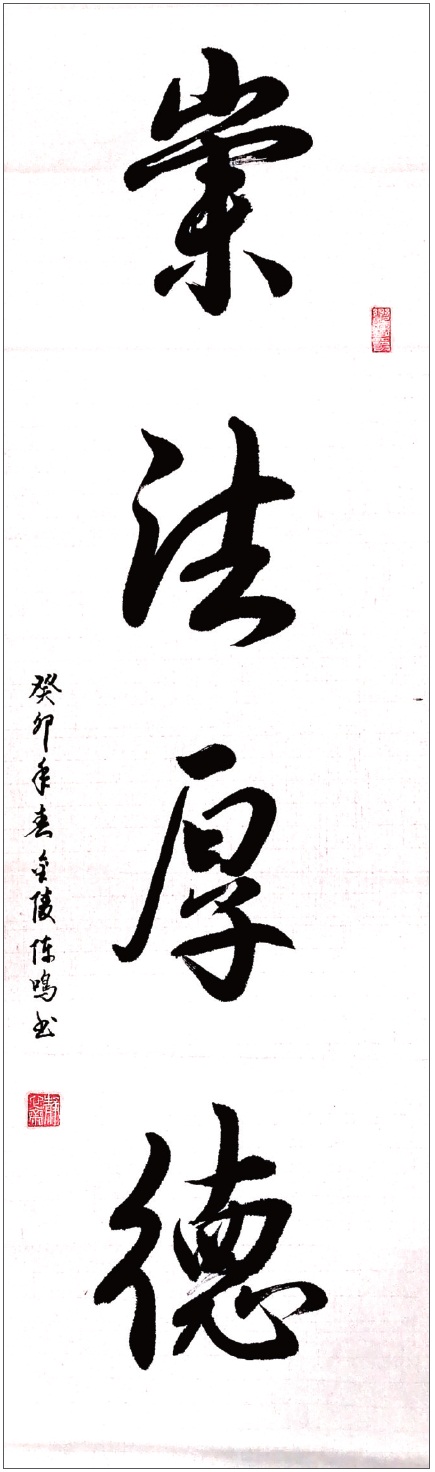 崇法厚德
癸卯年春金陵陈鸣书